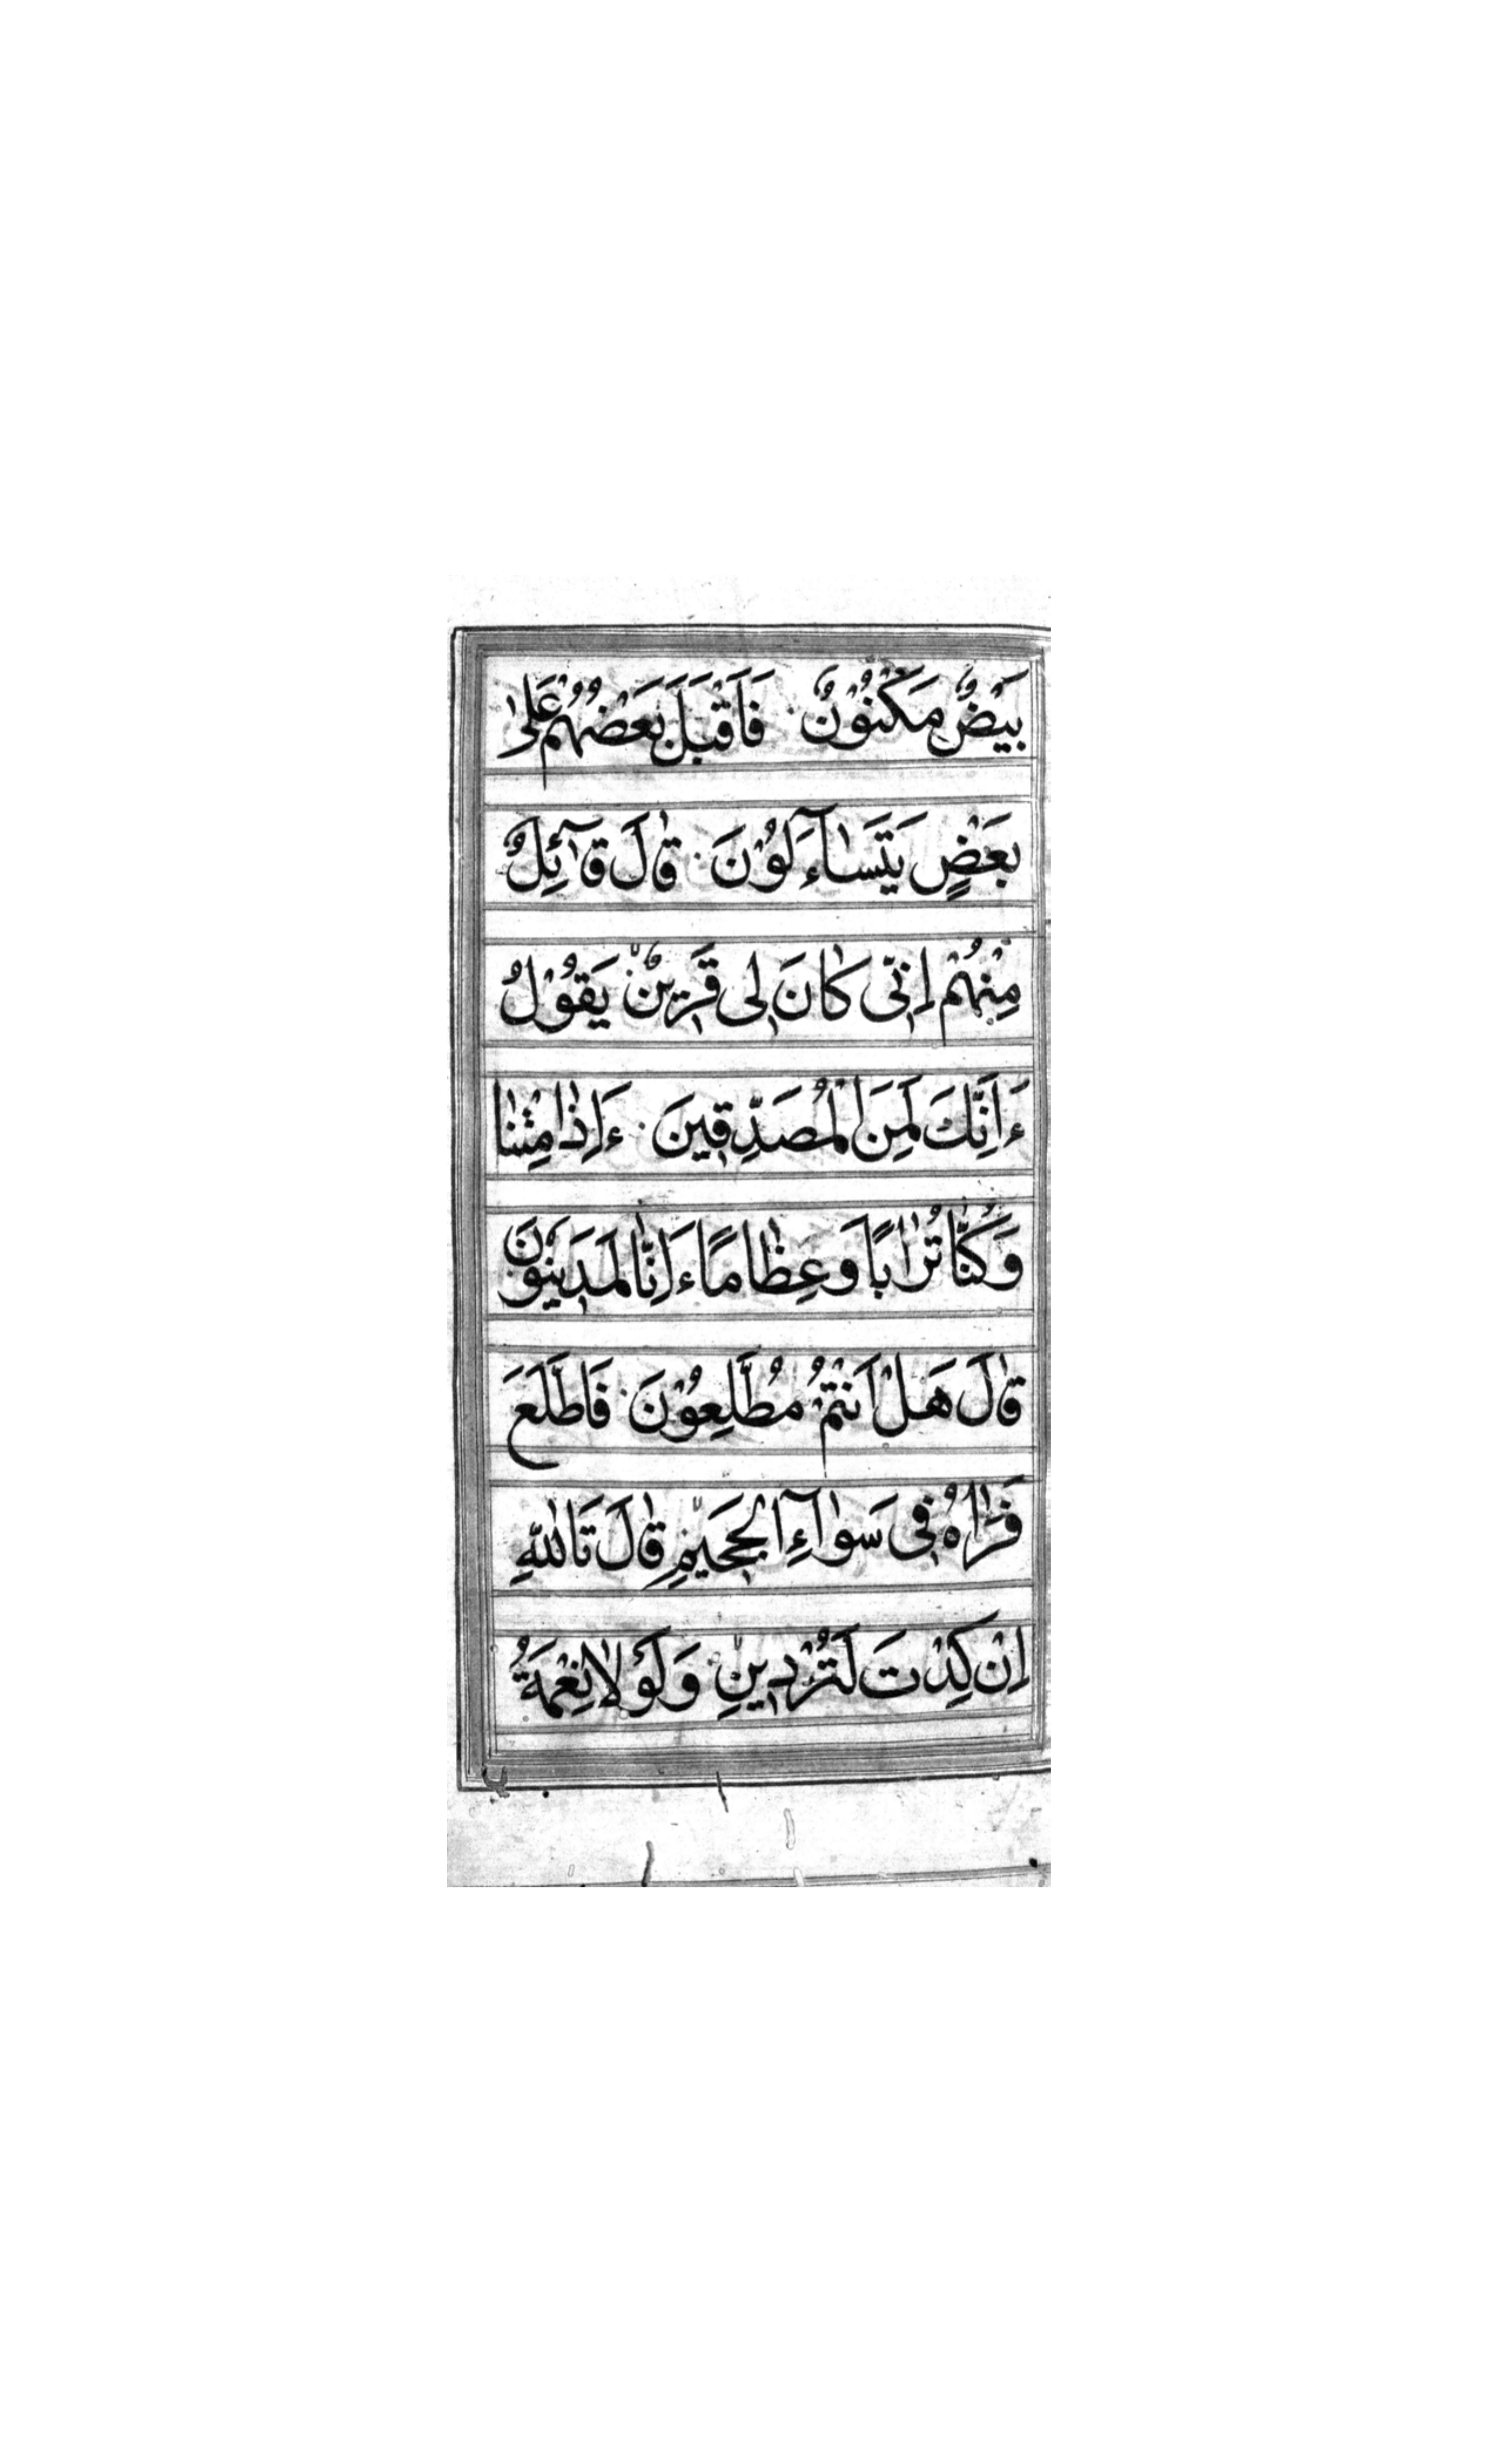 بَيْضٌ مَكْنُوْنٌ فَاَقْبَلَ بَعْضُهُمْ عَلٰى
بَعْضٍ يَتَسٰآءَلُوْنَ قٰالَ قٰآئِلٌ
مِنْهُمْ اِنّٖى كٰانَ لٖى قَرٖيْنٌ يَقُوْلُ
ءَاَنِّكَ لَمِنَ الْمُصَدِّقٖينَ ءَاِذٰا مِتْنٰا
وَكُنّٰا تُرٰاباً وَعِظٰاماً ءَاِنّٰا لَمَدٖيْنُوْنَ
قٰالَ هَلْ اَنْتُمْ مُطَّلِعُوْنَ فَاطَّلَعَ
فَرَاٰهُ فٖى سَوٰآءِ الْجَحٖيْمِ قٰالَ تَاللّٰهِ
اِنْ كِدْتَ لَتُرْدٖينِ وَلَوْلٰا نِعْمَةُ